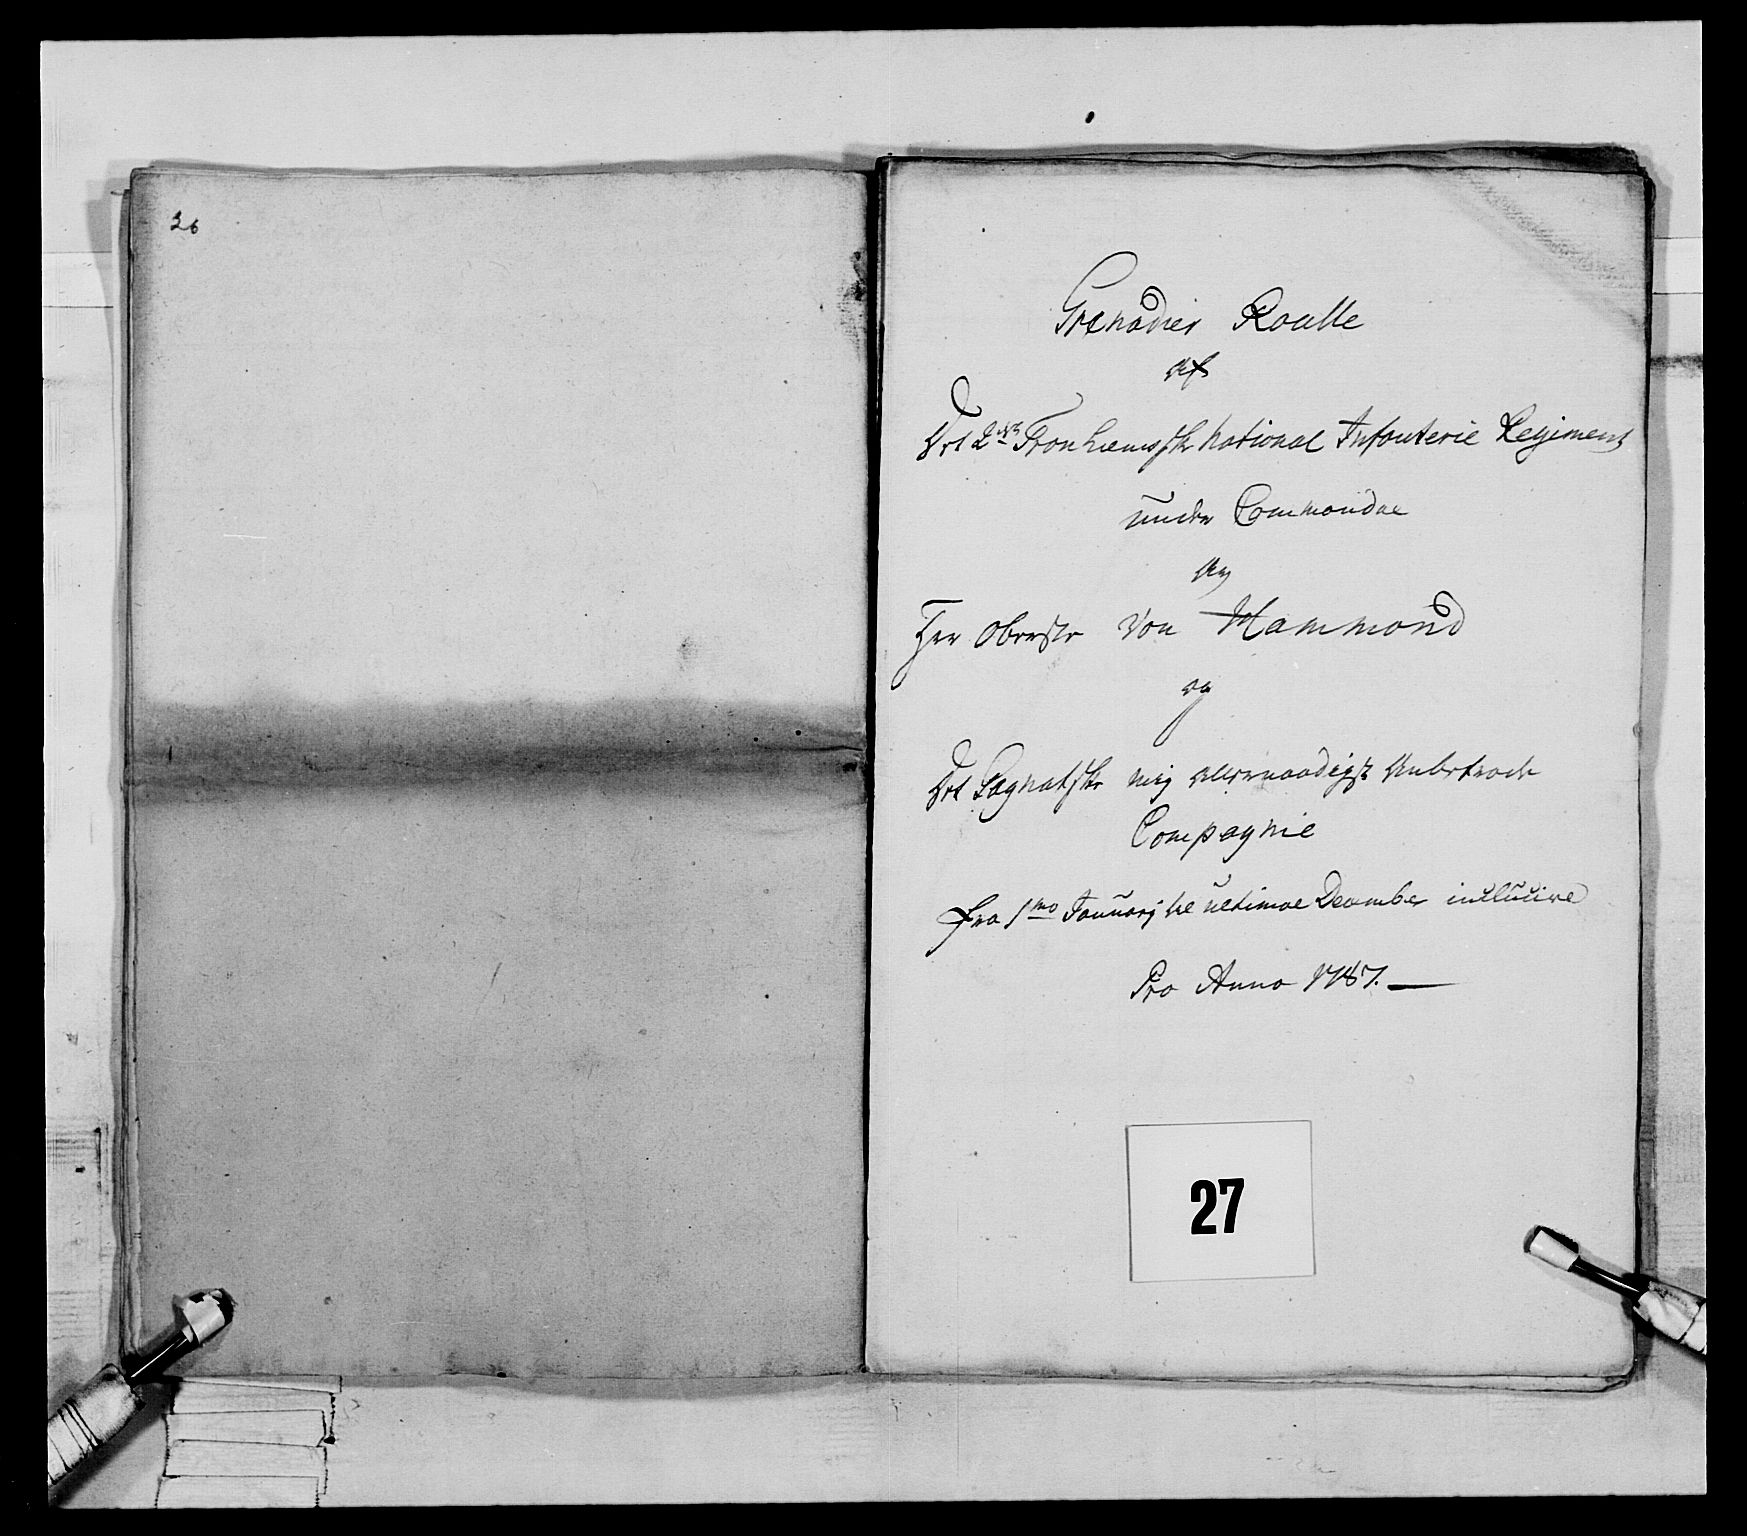 26
Grenadier Roulle
Af
Det 2det Tronhiemske National Infanterie Regiment
under Commandoe
Af
Herr Oberste von Hammond
og
Det Sognatske mig allernaadigst Anbetroede
Compagnie
fra 1mo Januarj til ultimoe December inclusive
Pro Anno 1787.
27